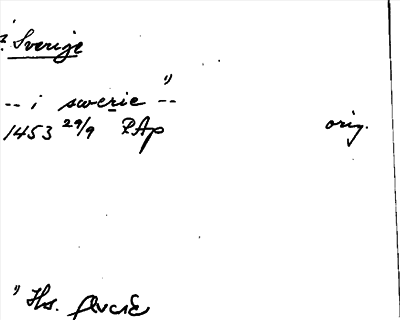 Sverige
-- i swerie ¹) --
1453 29/9 RAp orig.
¹) Hs.